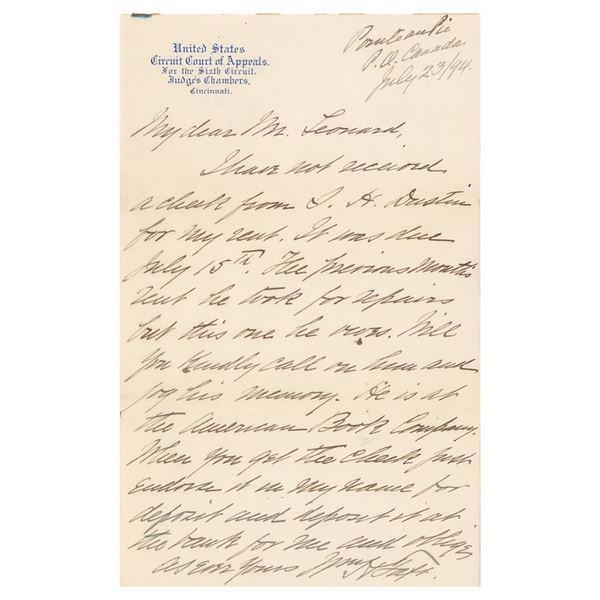 United States
Circuit Court of Appeals.
For the Sixth Circuit.
Judge's Chambers,
Cincinnati.
Pointe au Pic
P.Q. Canada
July 23/94.
My dear Mr. Leonard,
I have not received
a check from S. H. Dustin
for my rent. It was due
July 15th. The previous month's
rent he took for repairs
but this one he owes. Will
you kindly call on him and
jog his memory. He is at
the American Book Company.
When you get the check just
endorse it in my name for
deposit and deposit it at
the bank for me and oblige
as ever yours Wm H Taft.